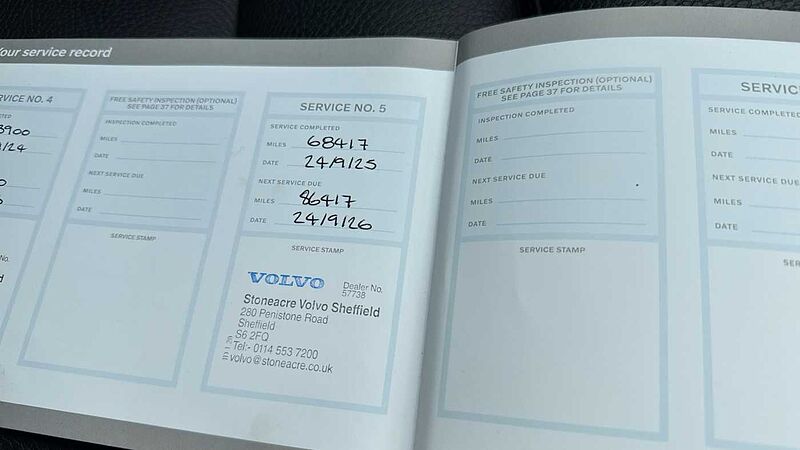 Your service record
RVICE NO. 4
3900
9/24
FREE SAFETY INSPECTION (OPTIONAL)
SEE PAGE 37 FOR DETAILS
INSPECTION COMPLETED
MILES
DATE
NEXT SERVICE DUE
MILES
DATE
SERVICE STAMP
SERVICE NO. 5
SERVICE COMPLETED
MILES 68417
DATE 24/9/25
NEXT SERVICE DUE
MILES 86417
DATE 24/9/26
SERVICE STAMP
VOLVO Dealer No.
57738
Stoneacre Volvo Sheffield
280 Penistone Road
Sheffield
S6 2FQ
Tel:- 0114 553 7200
volvo@stoneacre.co.uk
FREE SAFETY INSPECTION (OPTIONAL)
SEE PAGE 37 FOR DETAILS
INSPECTION COMPLETED
MILES
DATE
NEXT SERVICE DUE
MILES
DATE
SERVICE STAMP
SERVIC
SERVICE COMPLETED
MILES
DATE
NEXT SERVICE DUE
MILES
DATE
SER